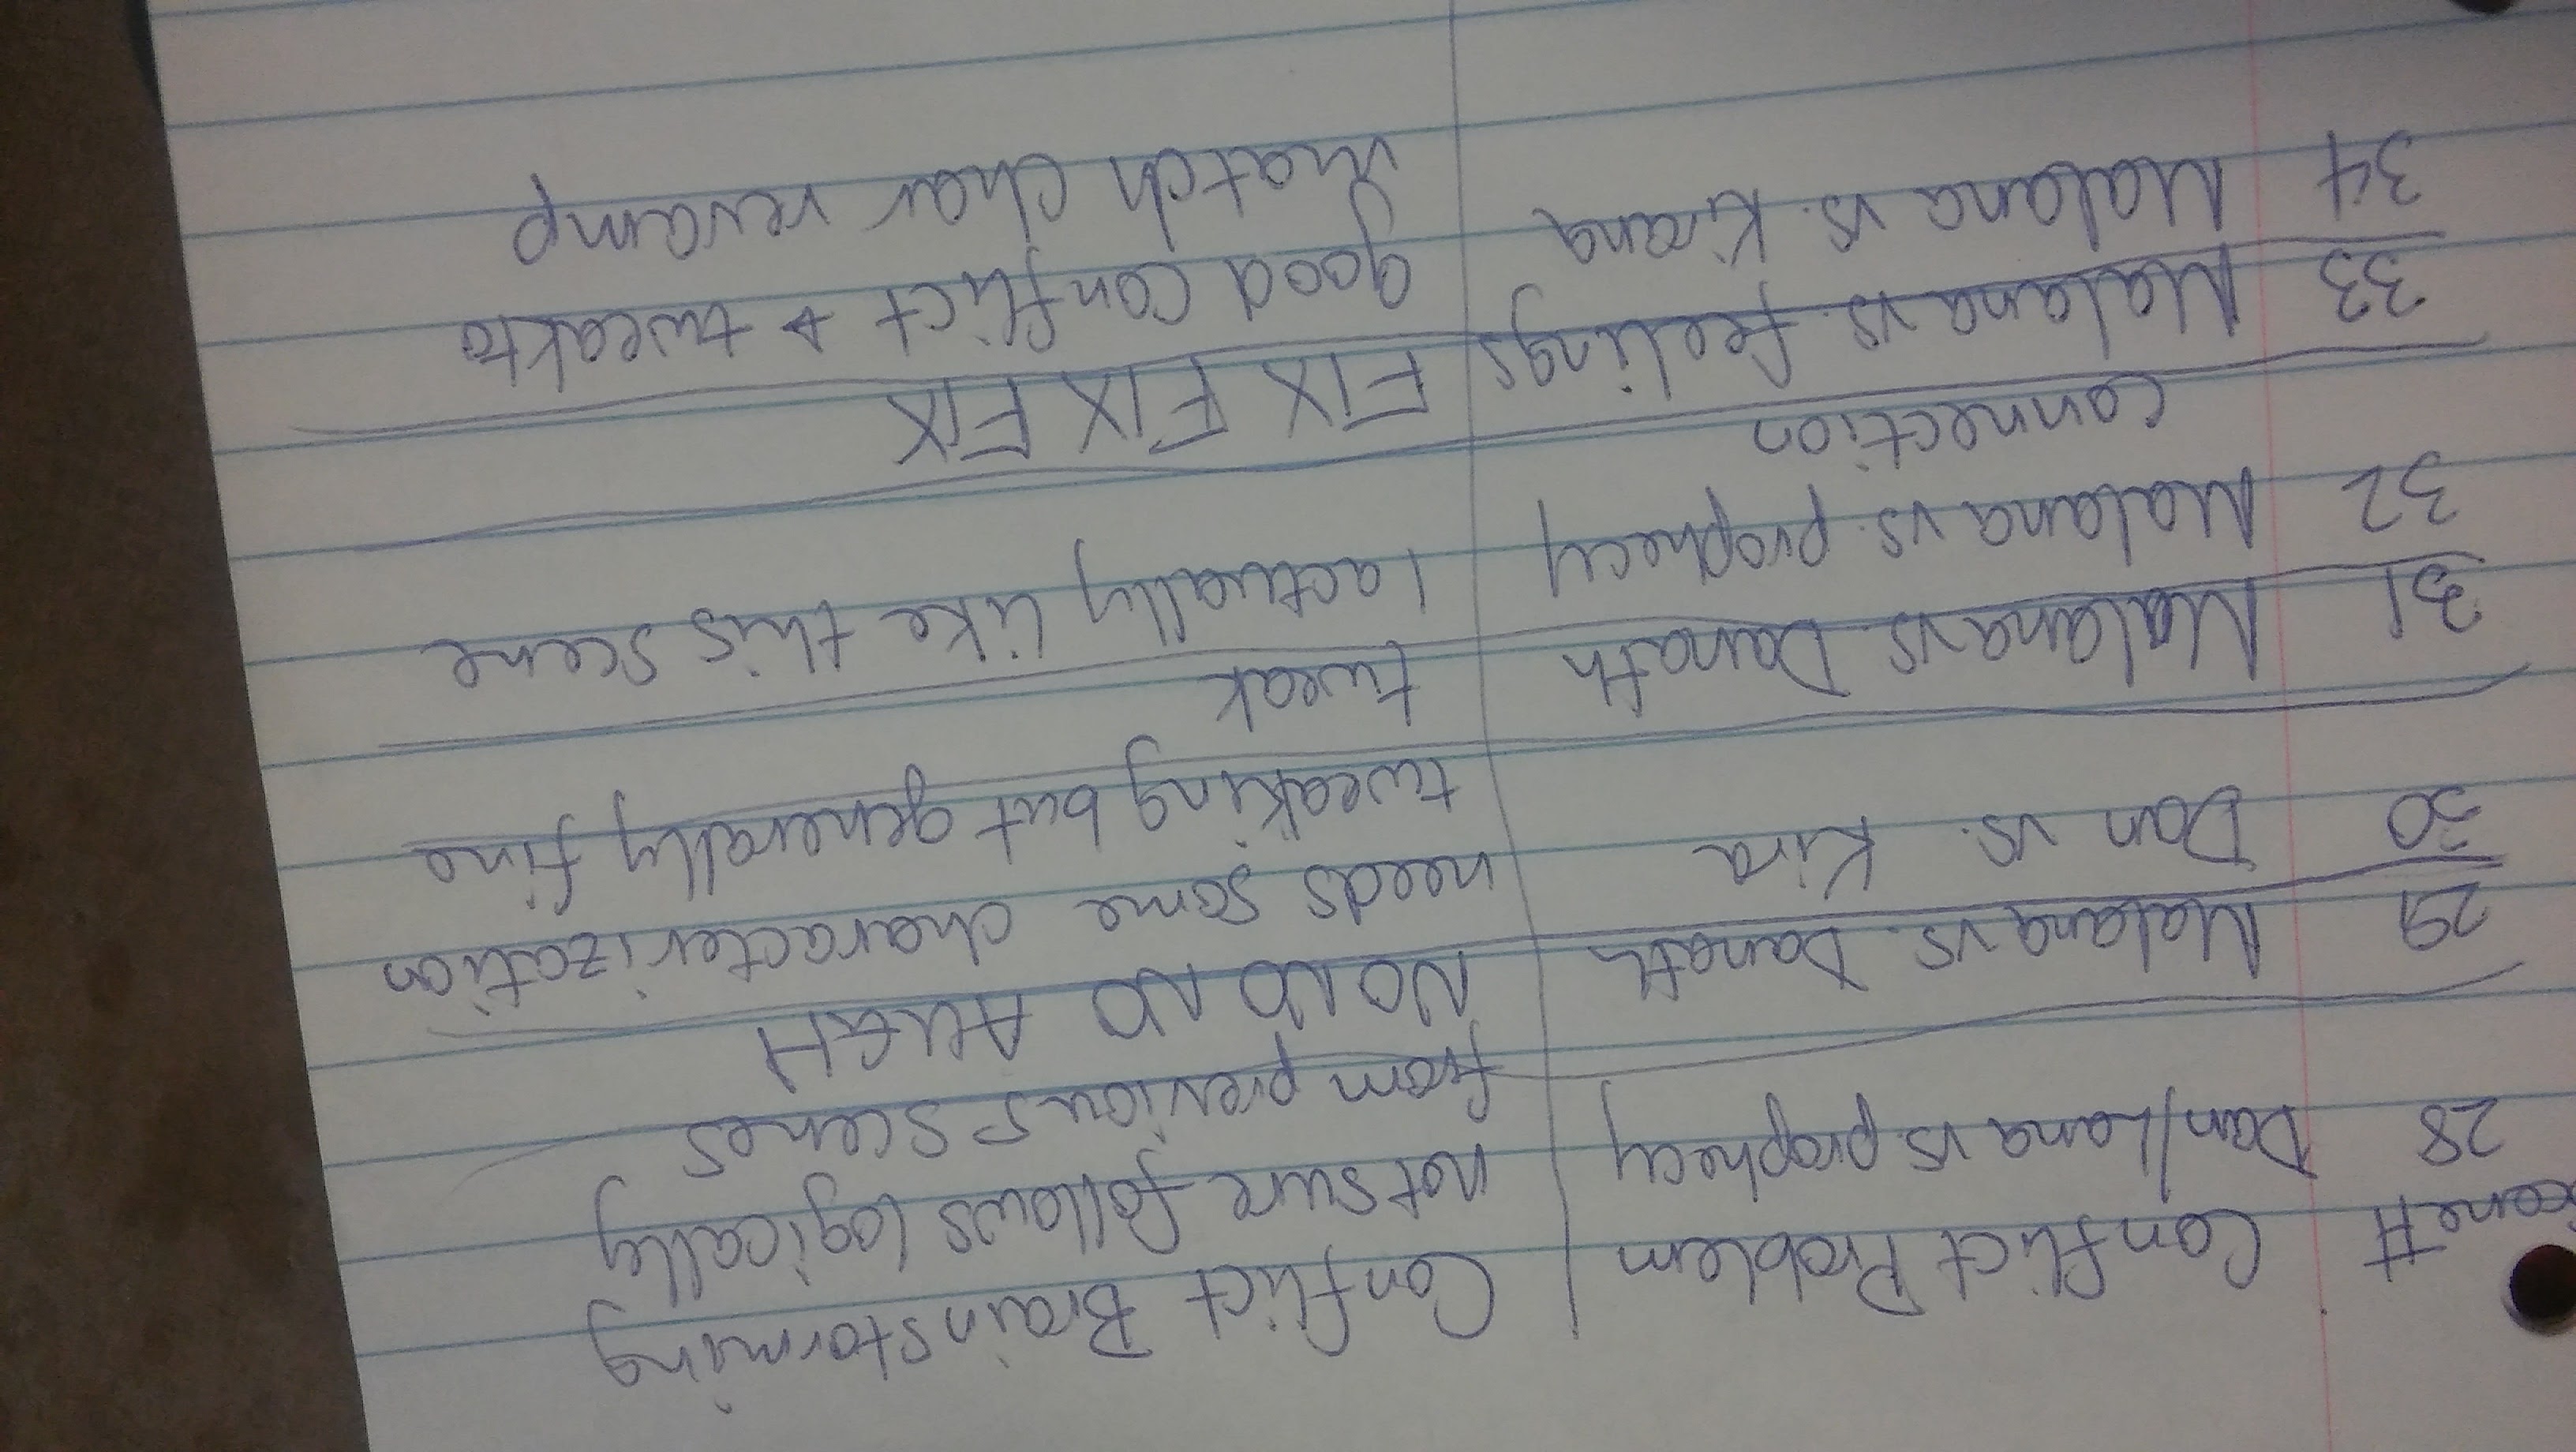 Scene # Conflict Problem | Conflict Brainstorming
28 Dan/Lana vs prophecy not sure follows logically
from previous scenes
29 Malana vs. Danath NO NO NO AUGH
30 Dan vs. Kira needs some characterization
tweaking but generally fine
31 Malana vs. Danath tweak
32 Malana vs. prophecy I actually like this scene
connection
33 Malana vs. feelings FIX FIX FIX
34 Malana vs. Kirana good conflict → tweak to
match char revamp